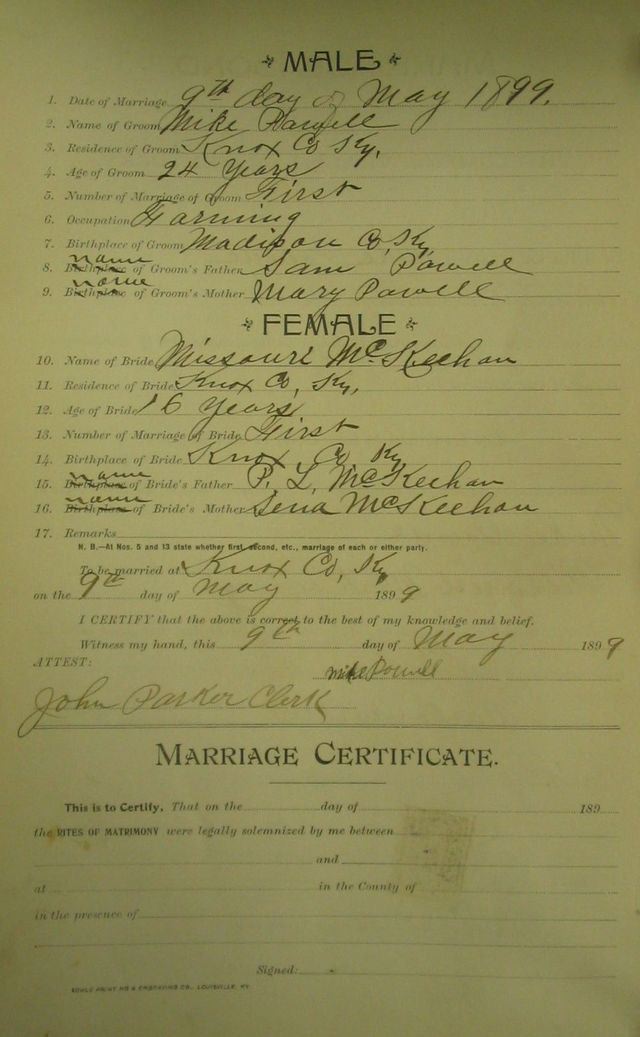 MALE
1. Date of Marriage 9th day of May 1899.
2. Name of Groom Mike Powell
3. Residence of Groom Knox Co Ky,
4. Age of Groom 24 Years
5. Number of Marriage of Groom First
6. Occupation Farming
7. Birthplace of Groom Madison Co, Ky
name
8. Birthplace of Groom's Father Sam Powell
name
9. Birthplace of Groom's Mother Mary Powell
FEMALE
10. Name of Bride Missouri McKeehan
11. Residence of Bride Knox Co, Ky,
12. Age of Bride 16 Years
13. Number of Marriage of Bride First
14. Birthplace of Bride Knox Co, Ky
name
15. Birthplace of Bride's Father P. L. McKeehan
name
16. Birthplace of Bride's Mother Lena McKeehan
17. Remarks
N. B.—At Nos. 5 and 13 state whether first, second, etc., marriage of each or either party.
To be married at Knox Co, Ky
on the 9th day of May 1899
I CERTIFY that the above is correct to the best of my knowledge and belief.
Witness my hand, this 9th day of May 1899
ATTEST:
Mike Powell
John Parker Clerk
MARRIAGE CERTIFICATE.
This is to Certify, That on the day of 189
the RITES OF MATRIMONY were legally solemnized by me between
and
at in the County of
in the presence of
Signed:
PRINTING & ENGRAVING CO., LOUISVILLE, KY